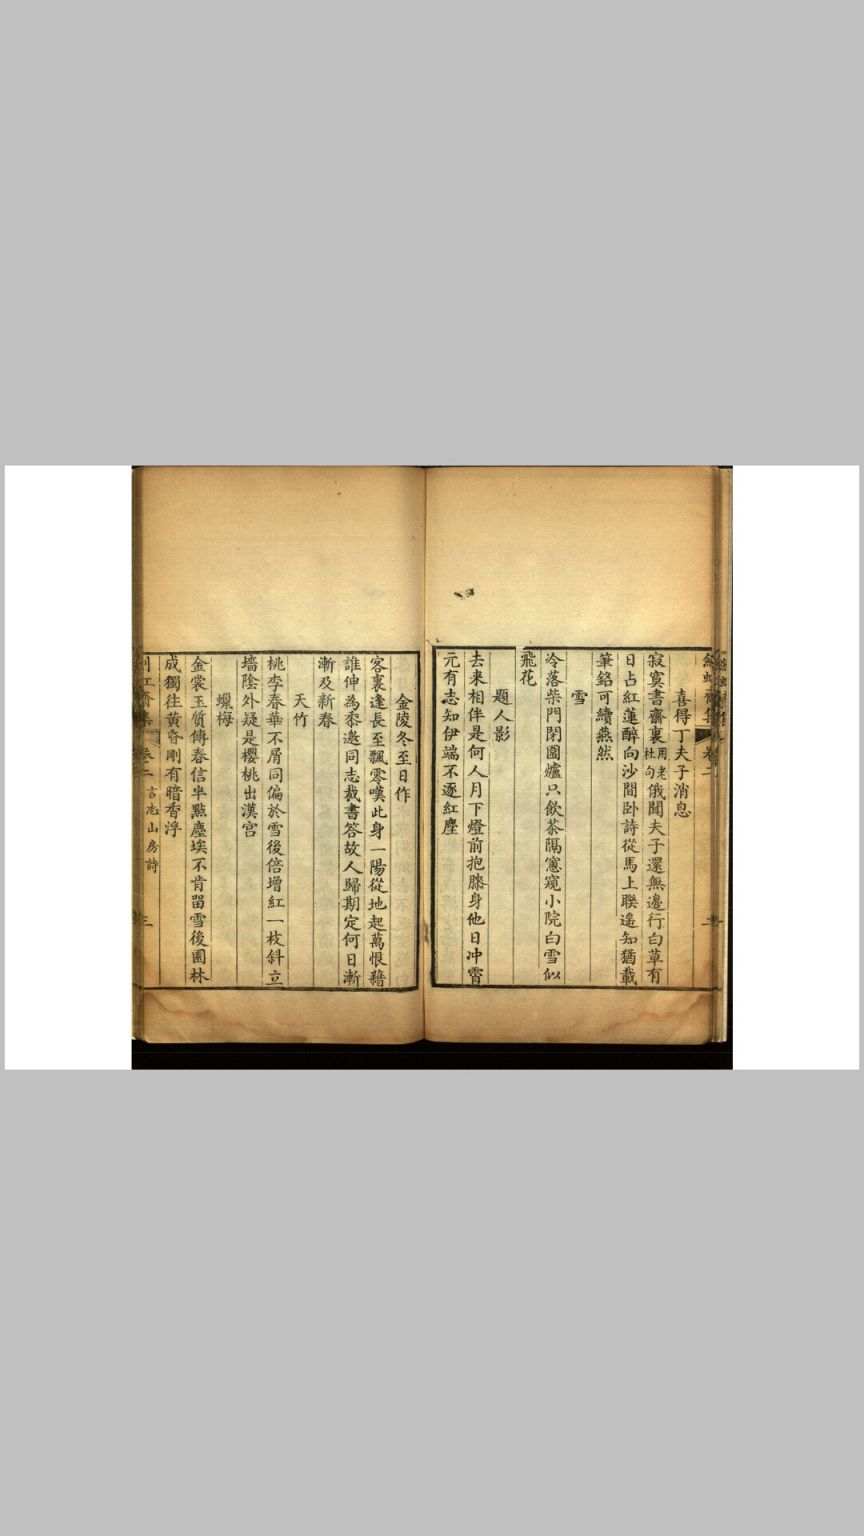 喜得丁夫子消息
寂寞書齋裏用老杜句俄聞夫子還無邊行白草有
日占紅蓮醉向沙間卧詩從馬上聯遥知猶載
筆銘可續燕然
雪
冷落柴門閉圍爐只飲茶隔窻窺小院白雪似
飛花
題人影
去來相伴是何人月下燈前抱膝身他日冲霄
元有志知伊端不逐紅塵
金陵冬至日作
客裏逢長至飄零嘆此身一陽從地起萬恨藉
誰伸為黍邀同志裁書答故人歸期定何日漸
漸及新春
天竹
桃李春華不屑同偏於雪後倍增紅一枝斜立
墻陰外疑是櫻桃出漢宫
蠟梅
金裳玉質傳春信半點塵埃不肯留雪後園林
成獨往黄昏剛有暗香浮
卷二 言志山房詩 三